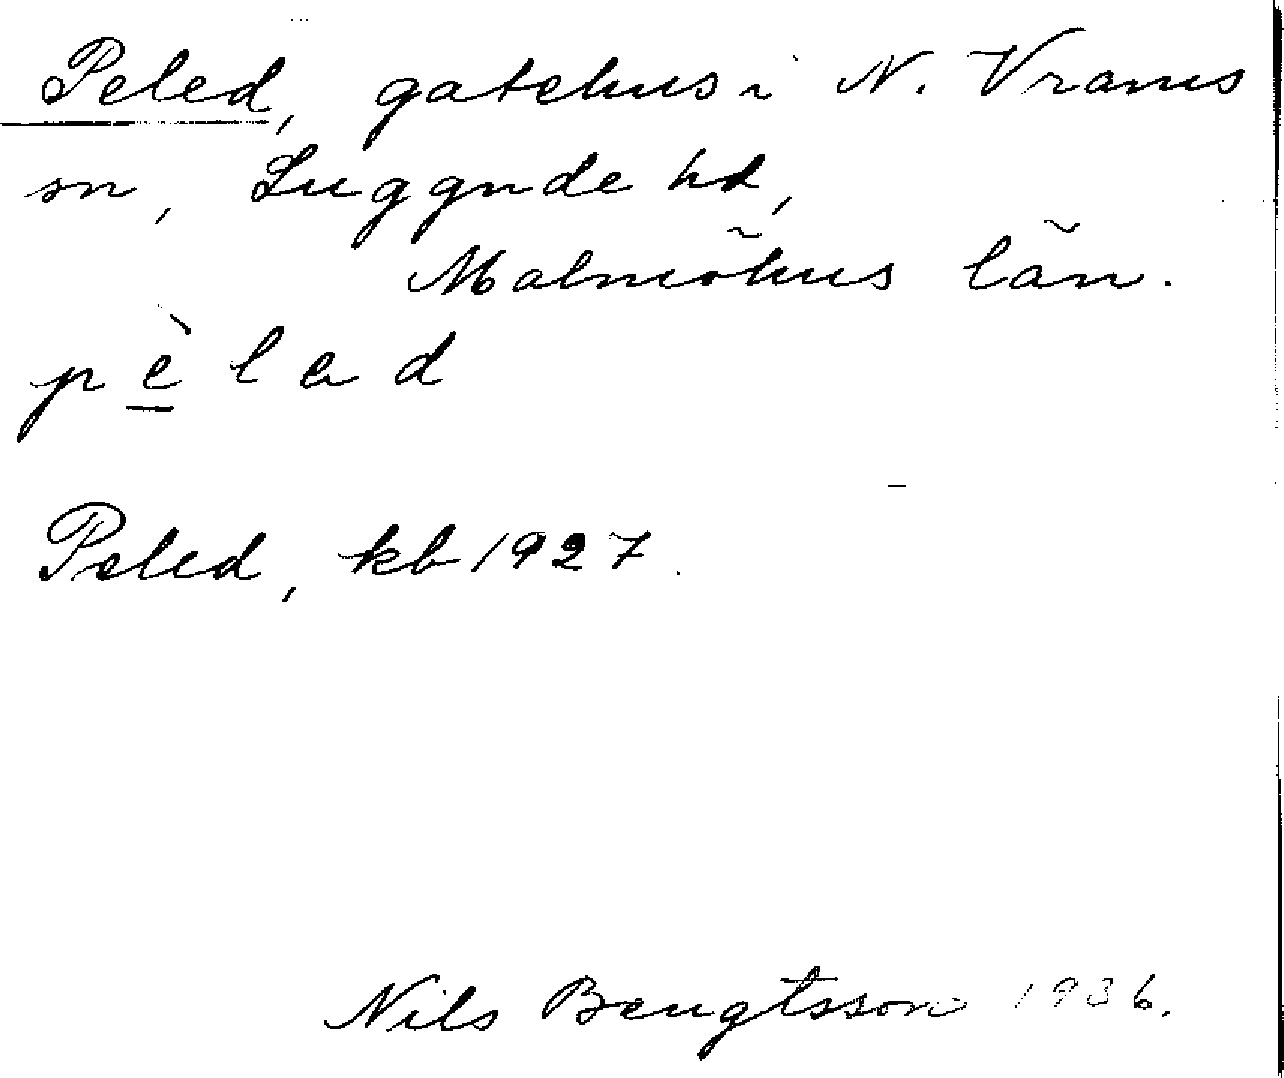 Peled, gatehus i N. Vrams
sn, Luggude hd,
Malmöhus län.
p è l a d
Peled, kb 1927.
Nils Bengtsson 1936.